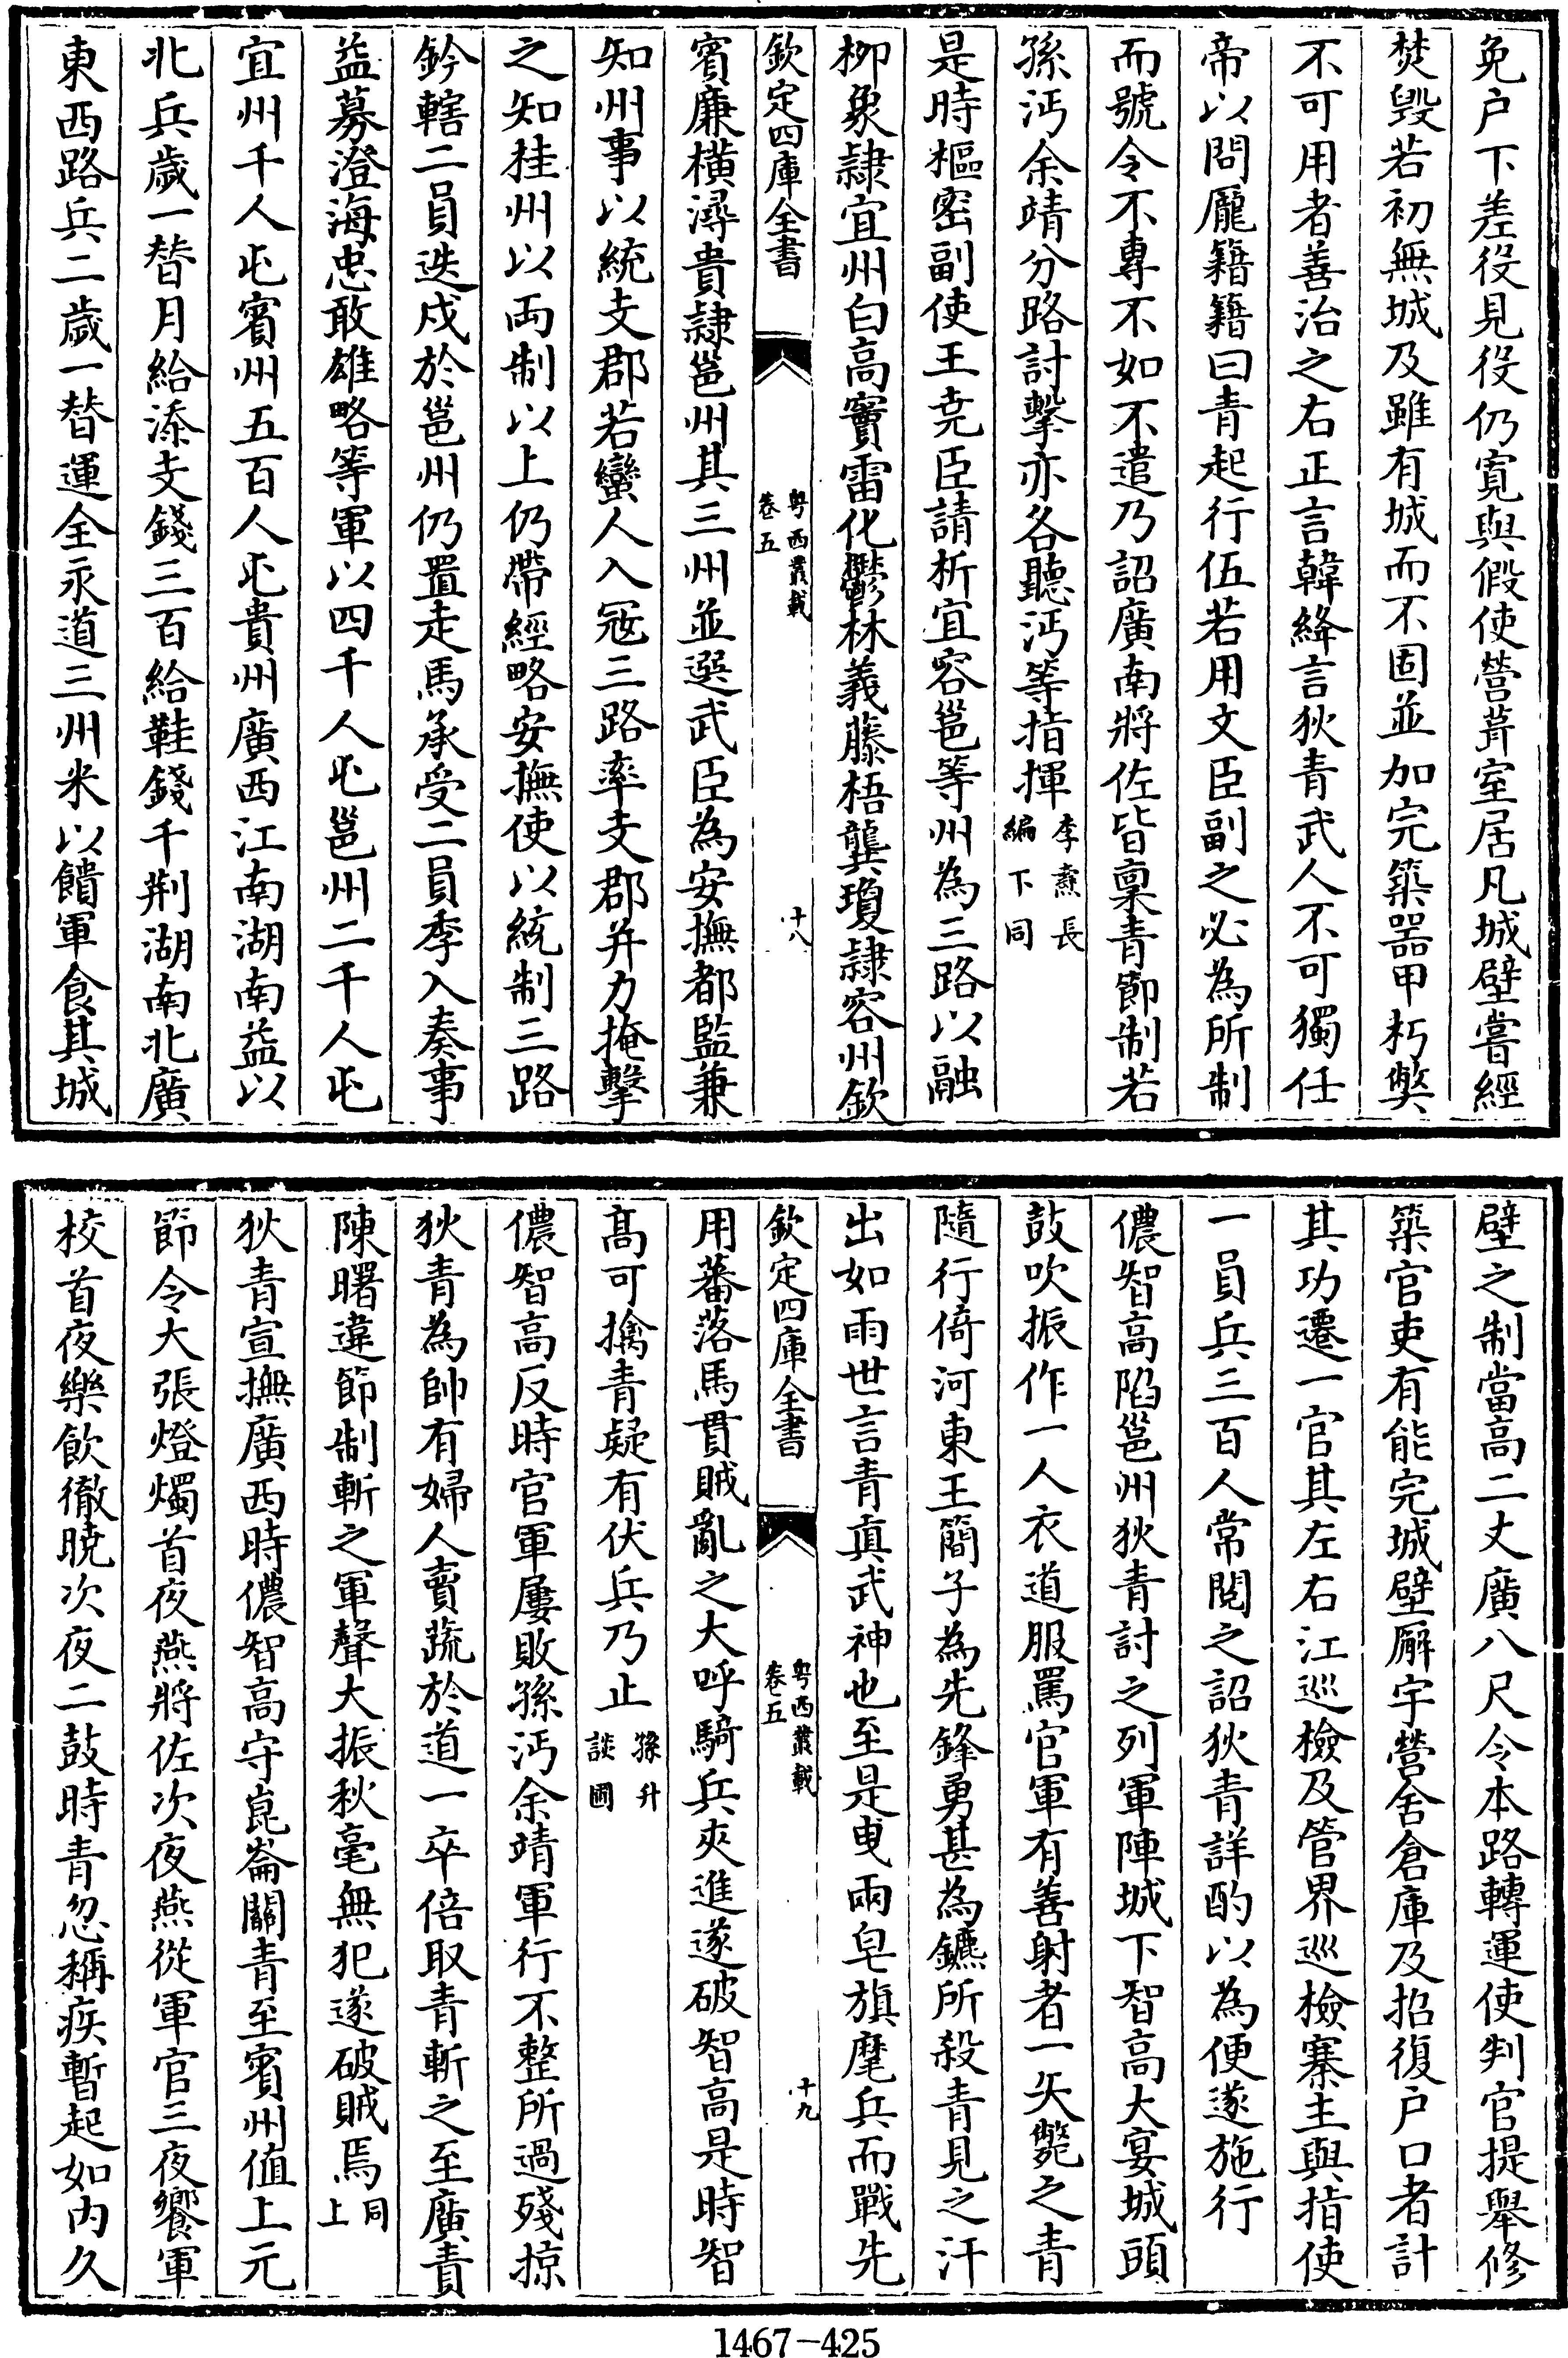 免户下差役見役仍寛與假使營葺室居凡城壁嘗經
焚毁若初無城及雖有城而不固並加完築器甲朽弊
不可用者善治之右正言韓絳言狄青武人不可獨任
帝以問龎籍籍曰青起行伍若用文臣副之必為所制
而號令不專不如不遣乃詔廣南將佐皆稟青節制若
孫沔余靖分路討擊亦各聽沔等指揮李燾長編下同
是時樞密副使王堯臣請析宜容邕等州為三路以融
柳象隷宜州白高竇雷化鬱林義藤梧龔瓊隷容州欽
欽定四庫全書 粤西叢載卷五 十八
賓廉横潯貴隷邕州其三州並選武臣為安撫都監兼
知州事以統支郡若蠻人入冦三路率支郡并力掩擊
之知桂州以両制以上仍帶經略安撫使以統制三路
鈐轄二員迭戍於邕州仍置走馬承受二員季入奏事
益募澄海忠敢雄略等軍以四千人屯邕州二千人屯
宜州千人屯賓州五百人屯貴州廣西江南湖南益以
北兵歲一替月給添支錢三百給鞋錢千荆湖南北廣
東西路兵二歲一替運全永道三州米以饋軍食其城
壁之制當高二丈廣八尺令本路轉運使判官提舉修
築官吏有能完城壁廨宇營舍倉庫及招復户口者計
其功遷一官其左右江巡檢及管界巡檢寨主與指使
一員兵三百人常閲之詔狄青詳酌以為便遂施行
儂智高陷邕州狄青討之列軍陣城下智高大宴城頭
鼓吹振作一人衣道服罵官軍有善射者一矢斃之青
隨行倚河東王簡子為先鋒勇甚為鑣所殺青見之汗
出如雨世言青真武神也至是曳兩皂旗麾兵而戰先
欽定四庫全書 粤西叢載卷五 十九
用蕃落馬貫賊亂之大呼騎兵夾進遂破智高是時智
髙可擒青疑有伏兵乃止孫升談圃
儂智高反時官軍屢敗孫沔余靖軍行不整所過殘掠
狄青為帥有婦人賣蔬於道一卒倍取青斬之至廣責
陳曙違節制斬之軍聲大振秋毫無犯遂破賊焉同上
狄青宣撫廣西時儂智高守崑崙關青至賓州值上元
節令大張燈燭首夜燕將佐次夜燕從軍官三夜饗軍
校首夜樂飲徹曉次夜二鼓時青忽稱疾暫起如内久
1467-425